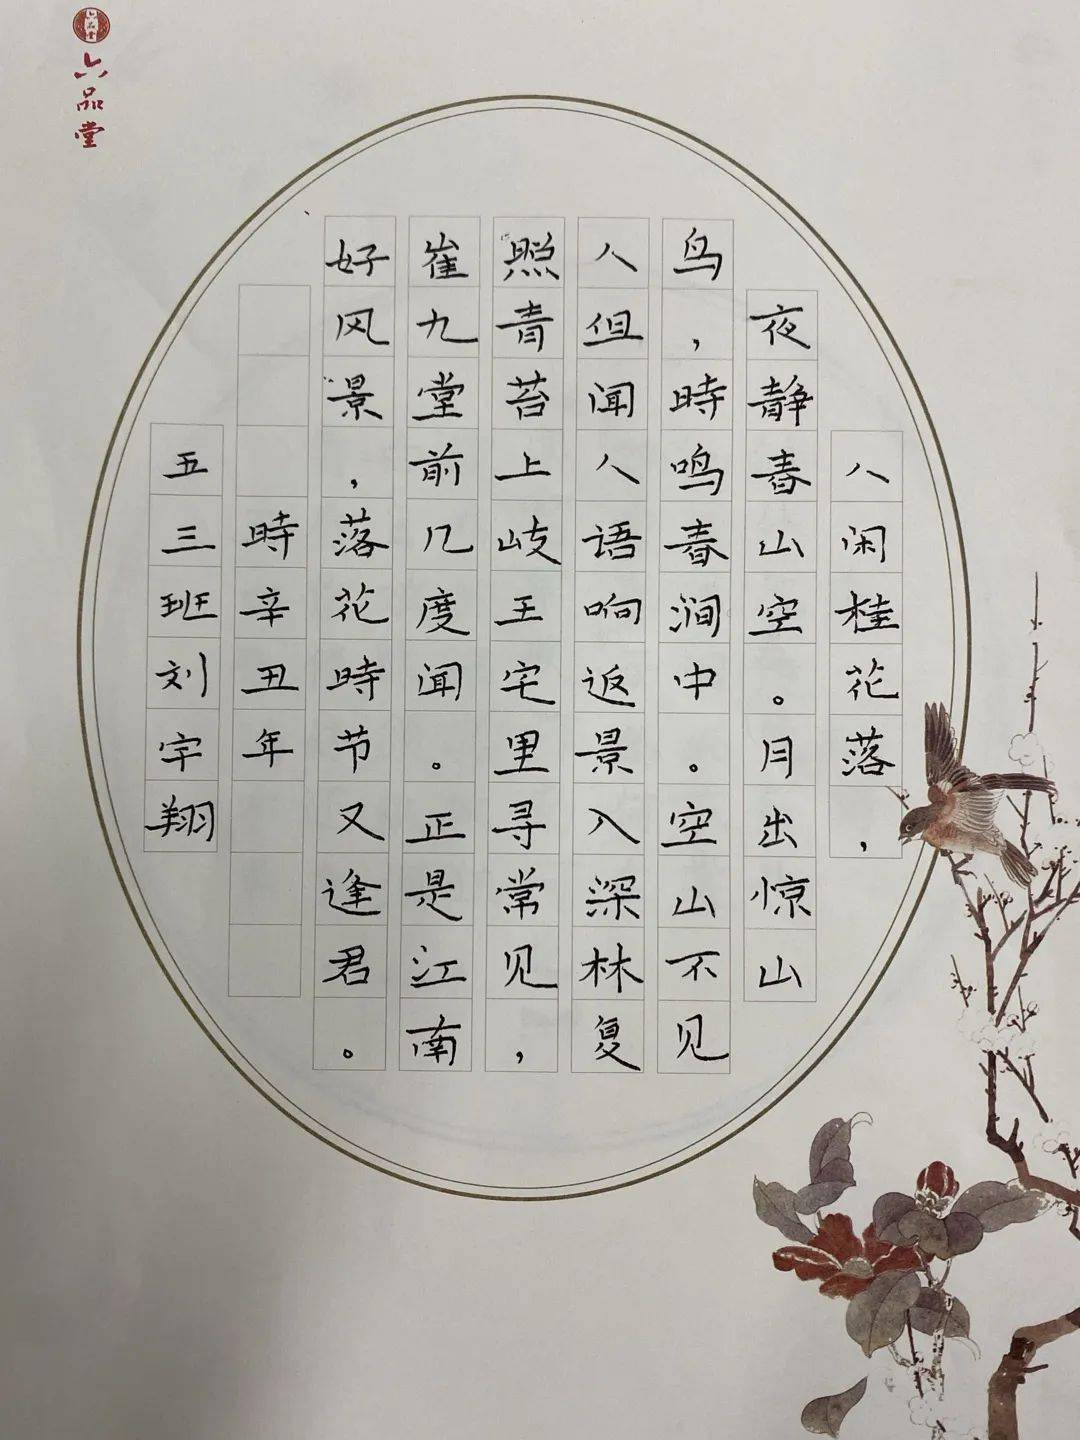 六品堂
六品堂
人闲桂花落，
夜静春山空。月出惊山
鸟，時鸣春涧中。空山不见
人但闻人语响返景入深林复
照青苔上岐王宅里寻常见，
崔九堂前几度闻。正是江南
好风景，落花時节又逢君。
時辛丑年
五三班刘宇翔